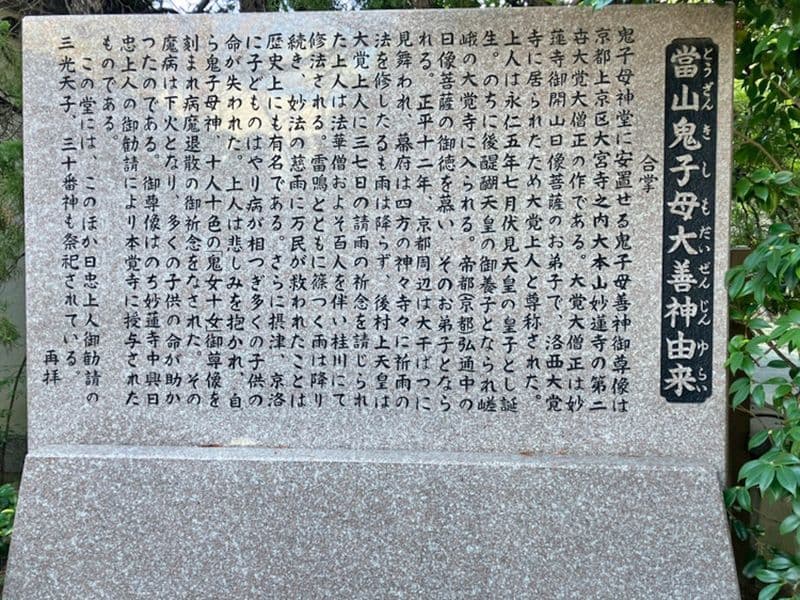 當山鬼子母大善神由来
とうざんきしもだいぜんじんゆらい
合掌
鬼子母神堂に安置せる鬼子母善神御尊像は
京都上京区大宮寺之内大本山妙蓮寺の第二
大覚大僧正の作である。大覚大僧正は妙
蓮寺御開山日像菩薩のお弟子で、洛西大覚
寺に居られたため大覚上人と尊称された。
上人は永仁五年七月伏見天皇の皇子とし誕
生。のちに後醍醐天皇の御養子となられ嵯
峨の大覚寺に入られる。帝都(京都)弘通中の
日像菩薩の御徳を慕い、そのお弟子となら
れる。正平十二年、京都周辺は大干ばつに
見舞われ、幕府は四方の神々寺々に祈雨の
法を修したるも雨は降らず、後村上天皇は
大覚上人に三七日の請雨の祈念を請じられ
た上人は法華僧およそ百人を伴い桂川にて
修法される。雷鳴とともに篠つく雨は降り
続き、妙法の慈雨に万民が救われたことは
歴史上にも有名である。さらに摂津、京洛
に子どものはやり病が相つぎ多くの子供の
命が失われた。上人は悲しみを抱かれ、自
ら鬼子母神、十人十色の鬼女(十女)御尊像を
刻まれ病魔退散の御祈念をなされた。その
魔病は下火となり、多くの子供の命が助か
つたのである。御尊像はのち妙蓮寺中興日
忠上人の御勧請により本覚寺に授与された
ものである
この堂には、このほか日忠上人御勧請の
三光天子、三十番神も祭祀されている。
再拝